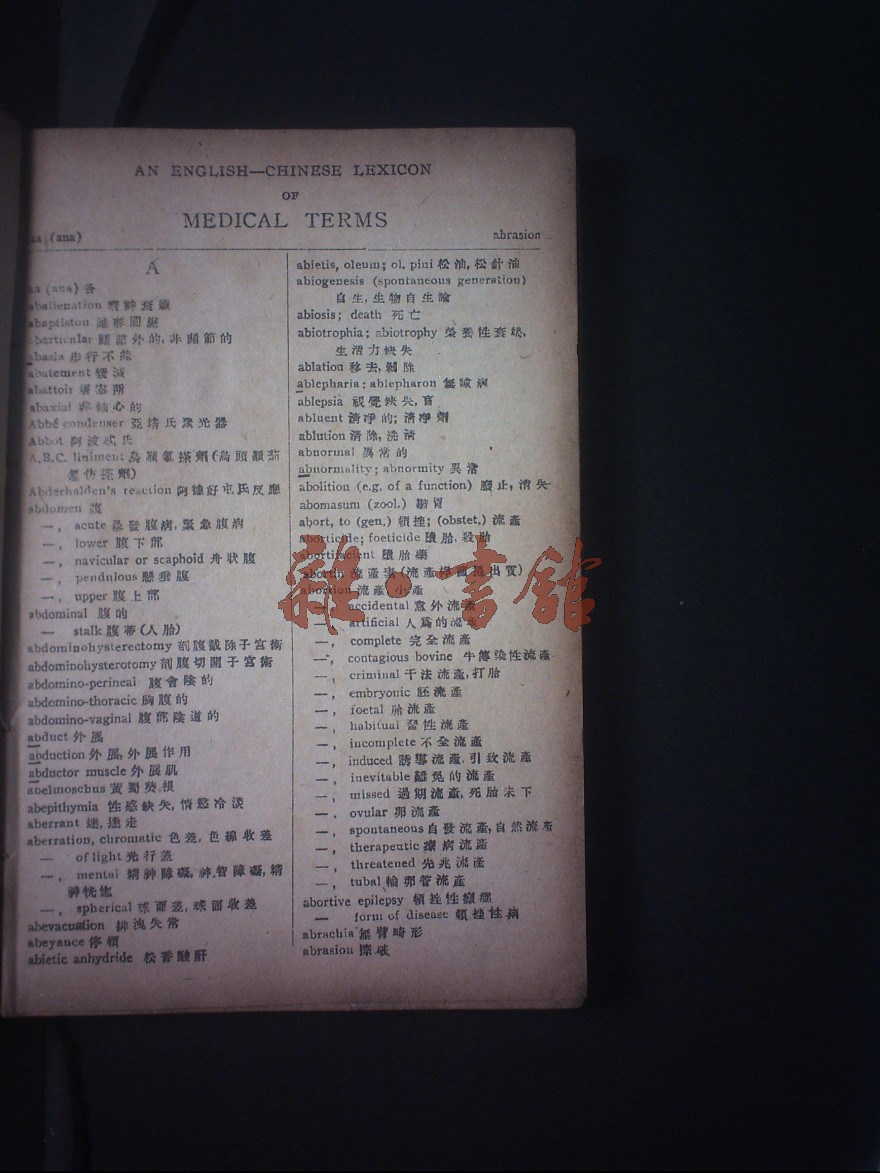 AN ENGLISH—CHINESE LEXICON
OF
MEDICAL TERMS
(ana)
abrasion
A
aa (ana) 各
abalienation 精神衰頹
abaptiston 錐形圓鋸
abarticular 關節外的, 非關節的
abasia 步行不能
abatement 變減
abattoir 屠宰所
abaxial 非軸心的
Abbé condenser 亞培氏聚光器
Abbot 阿波忒氏
A.B.C. liniment 烏頭氯搽劑(烏頭顛茄
氯仿搽劑)
Abderhalden's reaction 阿德好屯氏反應
abdomen 腹
—, acute 暴發腹病, 緊急腹病
—, lower 腹下部
—, navicular or scaphoid 舟狀腹
—, pendulous 懸垂腹
—, upper 腹上部
abdominal 腹的
— stalk 腹蒂(人胎)
abdominohysterectomy 剖腹截除子宮術
abdominohysterotomy 剖腹切開子宮術
abdomino-perineal 腹會陰的
abdomino-thoracic 胸腹的
abdomino-vaginal 腹部陰道的
abduct 外展
abduction 外展, 外展作用
abductor muscle 外展肌
abelmoschus 黃蜀葵根
abepithymia 性感缺失, 情慾冷淡
aberrant 迷, 迷走
aberration, chromatic 色差, 色線收差
— of light 光行差
—, mental 精神障礙, 神智障礙, 精
神恍惚
—, spherical 球面差, 球面收差
abevacuation 排洩失常
abeyance 停頓
abietic anhydride 松香酸酐
abietis, oleum; ol. pini 松油, 松針油
abiogenesis (spontaneous generation)
自生, 生物自生論
abiosis; death 死亡
abiotrophia; abiotrophy 榮養性衰竭,
生活力缺失
ablation 移去, 剝除
ablepharia; ablepharon 無瞼病
ablepsia 視覺缺失, 盲
abluent 清淨的; 清淨劑
ablution 清除, 洗清
abnormal 異常的
abnormality; abnormity 異常
abolition (e.g. of a function) 廢止, 消失
abomasum (zool.) 皺胃
abort, to (gen.) 頓挫; (obstet.) 流產
aborticide; foeticide 墮胎, 殺胎
abortifacient 墮胎藥
abortin 流產素(流產桿菌提出質)
abortion 流產, 小產
accidental 意外流產
—, artificial 人爲的流產
—, complete 完全流產
—, contagious bovine 牛傳染性流產
—, criminal 干法流產, 打胎
—, embryonic 胚流產
—, foetal 胎流產
—, habitual 習性流產
—, incomplete 不全流產
—, induced 誘導流產, 引致流產
—, inevitable 難免的流產
—, missed 過期流產, 死胎未下
—, ovular 卵流產
—, spontaneous 自發流產, 自然流產
—, therapeutic 療病流產
—, threatened 先兆流產
—, tubal 輸卵管流產
abortive epilepsy 頓挫性癲癇
— form of disease 頓挫性病
abrachia 無臂畸形
abrasion 擦破
雜·書館